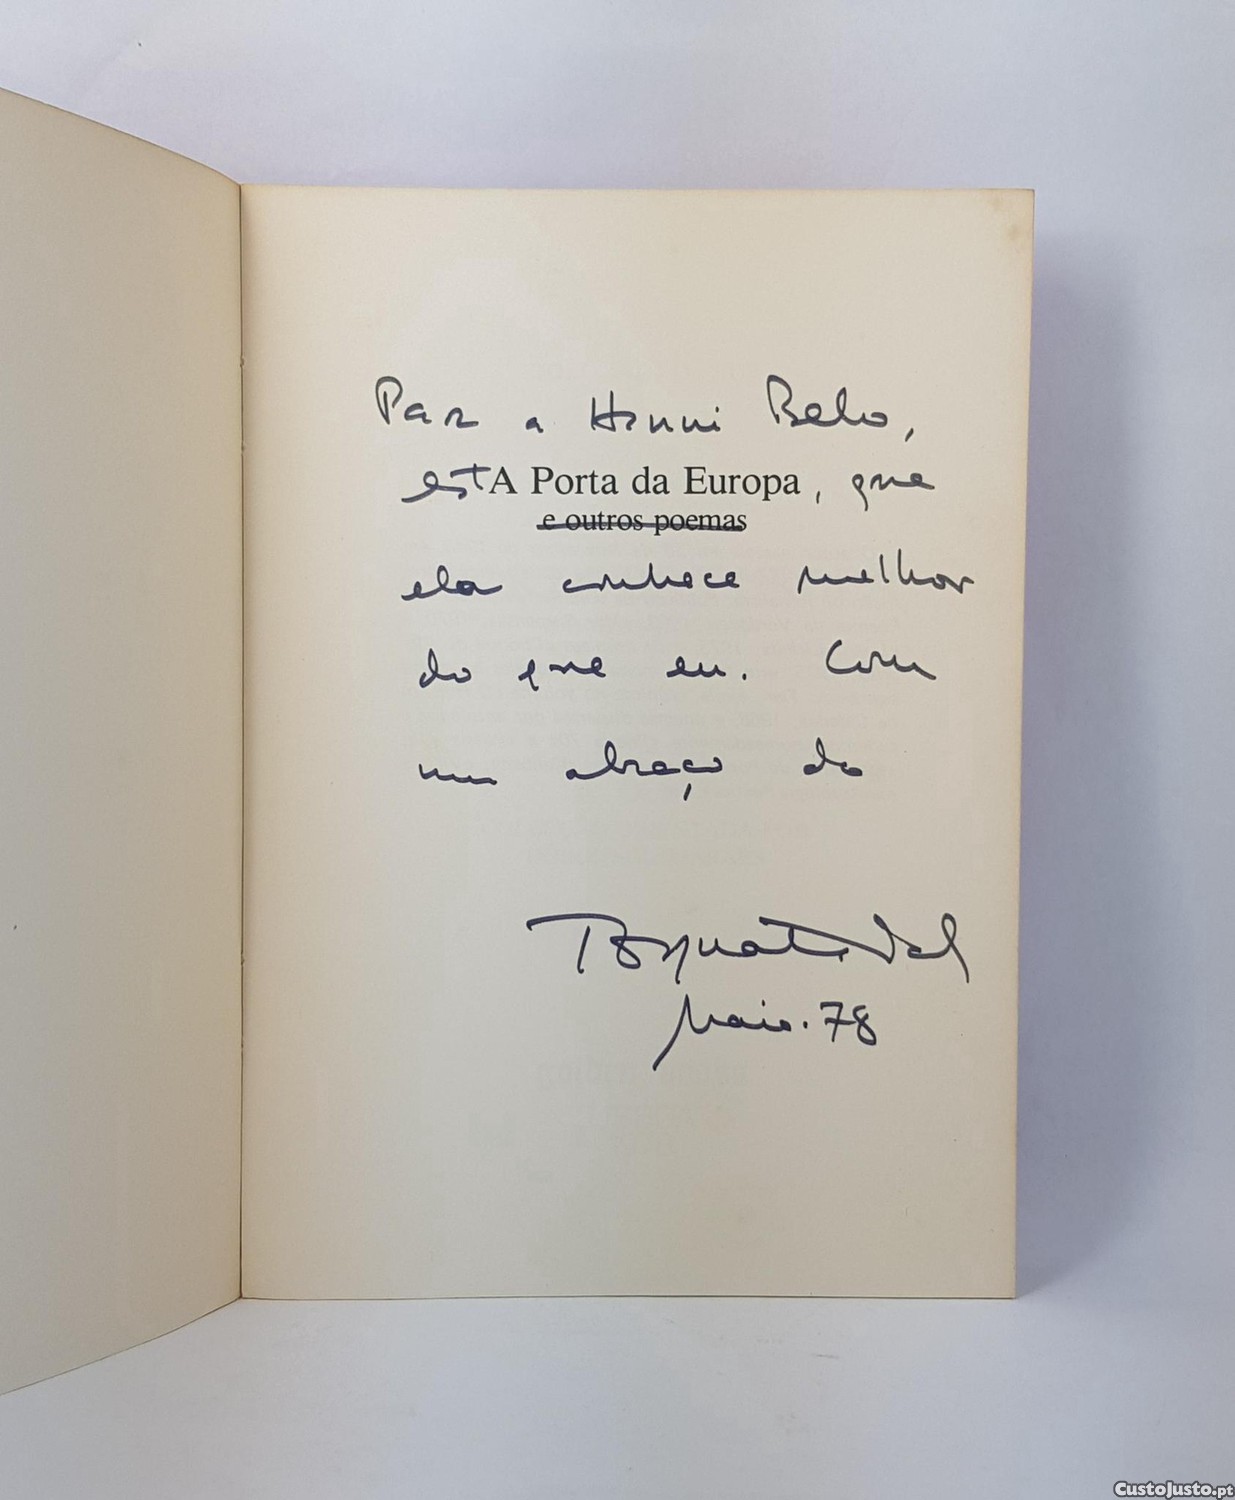 Para a Henni Belo,
estA Porta da Europa, que
e outros poemas
ela conhece melhor
do que eu. Com
um abraço do
Maio. 78
CustoJusto.pt